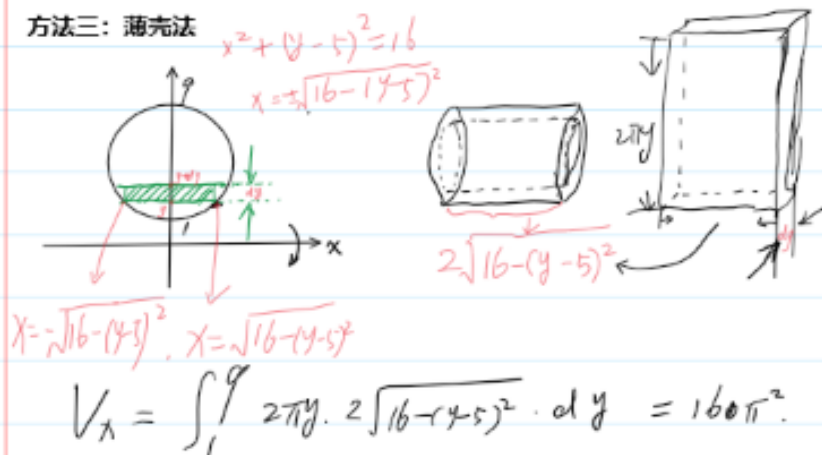 方法三：薄壳法
x² + (y-5)² = 16
x = ±√(16-(y-5)²)
9
y+dy
dy
y
1
x
2πy
dy
2√(16-(y-5)²)
x = -√(16-(y-5)²), x = √(16-(y-5)²)
Vₓ = ∫₁⁹ 2πy · 2√(16-(y-5)²) · dy = 160π².